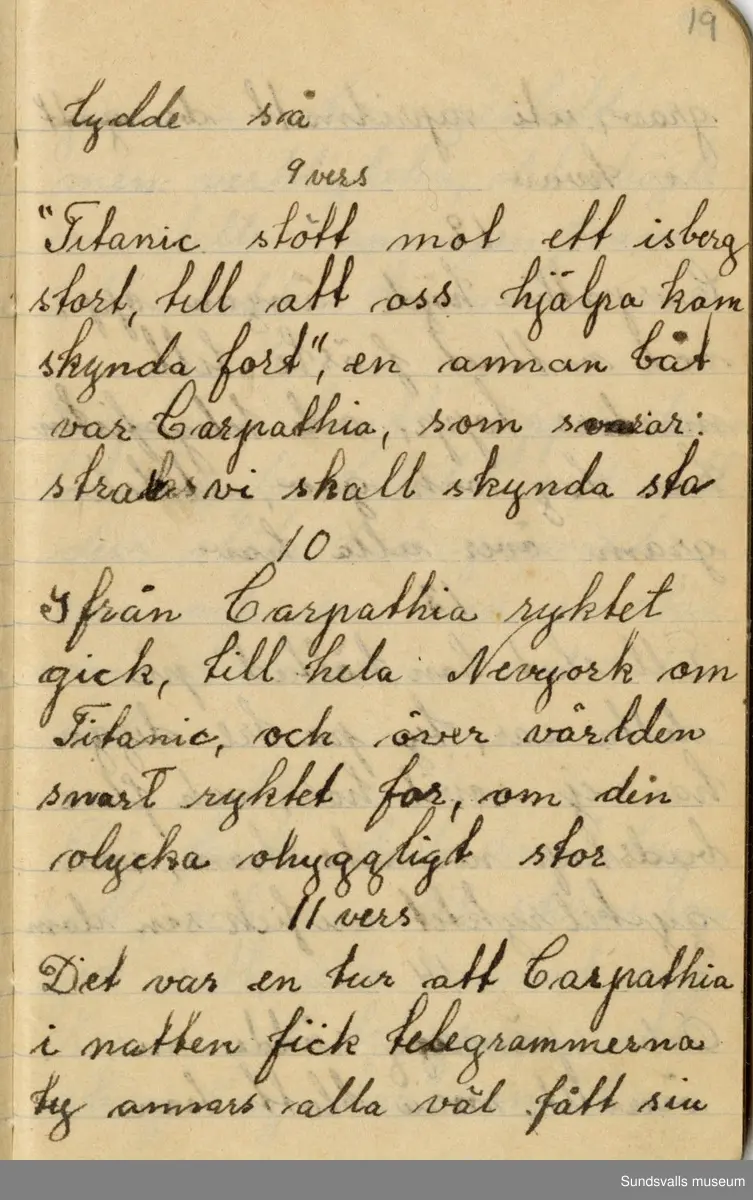 19
lydde så
9 vers
"Titanic stött mot ett isberg
stort, till att oss hjälpa kom
skynda fort", en annan båt
var Carpathia, som svarar:
straks vi skall skynda sta
10
Ifrån Carpathia ryktet
gick, till hela Nevyork om
Titanic, och över världen
snart ryktet for, om din
olycka ohyggligt stor
11 vers
Det var en tur att Carpathia
i natten fick telegrammerna
ty annars alla väl fått sin
Sundsvalls museum